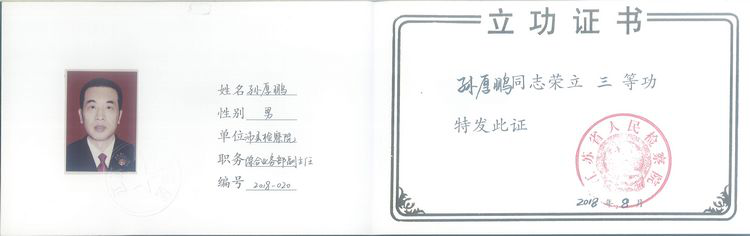 姓名 孙厚鹏
性别 男
单位 沛县检察院
职务 综合业务部副主任
编号 2018-020
立功证书
孙厚鹏同志荣立 三 等功
特发此证
江苏省人民检察院
2018年8月